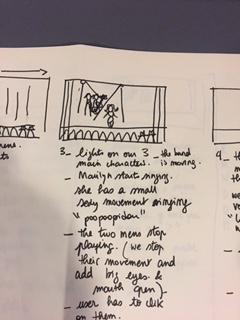 rens.
ts
3_ lights on our 3 _ the band
main characters. is moving.
_ Marilyn start singing.
she has a small
sexy movement singing
"poopoopidou"
_ the two mens stop
playing. (we stop
their movement and
add big eyes &
mouth open).
_ user has to clik
on them.
4_ th